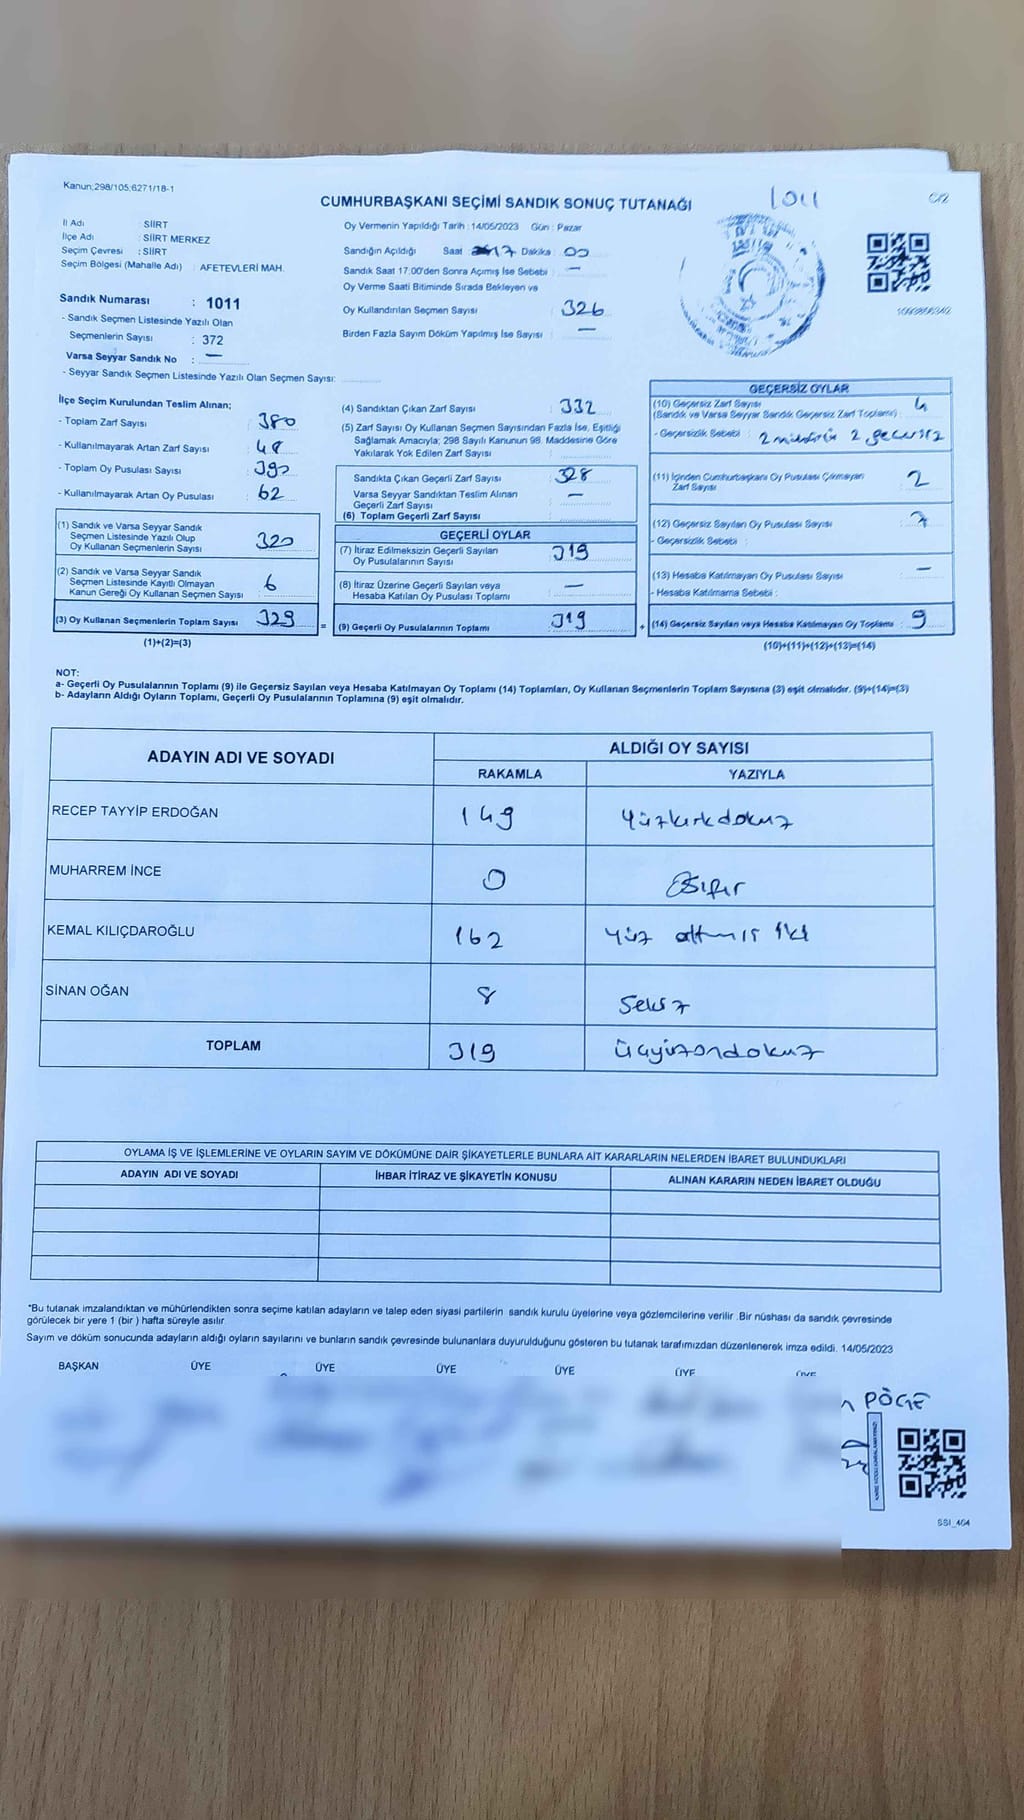 Kanun:298/105;6271/18-1
CUMHURBAŞKANI SEÇİMİ SANDIK SONUÇ TUTANAĞI
1011
C/2
İl Adı SİİRT
İlçe Adı : SİİRT MERKEZ
Seçim Çevresi : SİİRT
Seçim Bölgesi (Mahalle Adı) : AFETEVLERİ MAH.
Sandık Numarası : 1011
- Sandık Seçmen Listesinde Yazılı Olan
Seçmenlerin Sayısı : 372
Varsa Seyyar Sandık No : —
- Seyyar Sandık Seçmen Listesinde Yazılı Olan Seçmen Sayısı:
Oy Vermenin Yapıldığı Tarih : 14/05/2023 Gün : Pazar
Sandığın Açıldığı Saat 17 Dakika 00
Sandık Saat 17:00'den Sonra Açımış İse Sebebi : —
Oy Verme Saati Bitiminde Sırada Bekleyen ve
Oy Kullandırılan Seçmen Sayısı : 326
Birden Fazla Sayım Döküm Yapılmış İse Sayısı : —
İlçe Seçim Kurulundan Teslim Alınan;
- Toplam Zarf Sayısı : 380
- Kullanılmayarak Artan Zarf Sayısı : 48
- Toplam Oy Pusulası Sayısı : 390
- Kullanılmayarak Artan Oy Pusulası : 62
(1) Sandık ve Varsa Seyyar Sandık
Seçmen Listesinde Yazılı Olup
Oy Kullanan Seçmenlerin Sayısı : 320
(2) Sandık ve Varsa Seyyar Sandık
Seçmen Listesinde Kayıtlı Olmayan
Kanun Gereği Oy Kullanan Seçmen Sayısı : 6
(3) Oy Kullanan Seçmenlerin Toplam Sayısı : 329
(1)+(2)=(3)
(4) Sandıktan Çıkan Zarf Sayısı : 332
(5) Zarf Sayısı Oy Kullanan Seçmen Sayısından Fazla İse, Eşitliği
Sağlamak Amacıyla; 298 Sayılı Kanunun 98. Maddesine Göre
Yakılarak Yok Edilen Zarf Sayısı :
Sandıkta Çıkan Geçerli Zarf Sayısı : 328
Varsa Seyyar Sandıktan Teslim Alınan
Geçerli Zarf Sayısı : —
(6) Toplam Geçerli Zarf Sayısı :
GEÇERLİ OYLAR
(7) İtiraz Edilmeksizin Geçerli Sayılan
Oy Pusulalarının Sayısı : 319
(8) İtiraz Üzerine Geçerli Sayılan veya
Hesaba Katılan Oy Pusulası Toplamı : —
= (9) Geçerli Oy Pusulalarının Toplamı : 319
GEÇERSİZ OYLAR
(10) Geçersiz Zarf Sayısı
(Sandık ve Varsa Seyyar Sandık Geçersiz Zarf Toplamı) : 4
- Geçersizlik Sebebi : 2 2 geçersiz
(11) İçinden Cumhurbaşkanı Oy Pusulası Çıkmayan
Zarf Sayısı : 2
(12) Geçersiz Sayılan Oy Pusulası Sayısı : 7
- Geçersizlik Sebebi :
(13) Hesaba Katılmayan Oy Pusulası Sayısı : —
- Hesaba Katılmama Sebebi :
+ (14) Geçersiz Sayılan veya Hesaba Katılmayan Oy Toplamı : 9
(10)+(11)+(12)+(13)=(14)
NOT:
a- Geçerli Oy Pusulalarının Toplamı (9) ile Geçersiz Sayılan veya Hesaba Katılmayan Oy Toplamı (14) Toplamları, Oy Kullanan Seçmenlerin Toplam Sayısına (3) eşit olmalıdır. (9)+(14)=(3)
b- Adayların Aldığı Oyların Toplamı, Geçerli Oy Pusulalarının Toplamına (9) eşit olmalıdır.
ADAYIN ADI VE SOYADI ALDIĞI OY SAYISI
RAKAMLA YAZIYLA
RECEP TAYYİP ERDOĞAN 149 yüzkırkdokuz
MUHARREM İNCE 0 Sıfır
KEMAL KILIÇDAROĞLU 162 yüz altmış iki
SİNAN OĞAN 8 Sekiz
TOPLAM 319 üçyüzondokuz
OYLAMA İŞ VE İŞLEMLERİNE VE OYLARIN SAYIM VE DÖKÜMÜNE DAİR ŞİKAYETLERLE BUNLARA AİT KARARLARIN NELERDEN İBARET BULUNDUKLARI
ADAYIN ADI VE SOYADI İHBAR İTİRAZ VE ŞİKAYETİN KONUSU ALINAN KARARIN NEDEN İBARET OLDUĞU
*Bu tutanak imzalandıktan ve mühürlendikten sonra seçime katılan adayların ve talep eden siyasi partilerin sandık kurulu üyelerine veya gözlemcilerine verilir .Bir nüshası da sandık çevresinde
görülecek bir yere 1 (bir ) hafta süreyle asılır
Sayım ve döküm sonucunda adayların aldığı oyların sayılarını ve bunların sandık çevresinde bulunanlara duyurulduğunu gösteren bu tutanak tarafımızdan düzenlenerek imza edildi. 14/05/2023
BAŞKAN ÜYE ÜYE ÜYE ÜYE ÜYE ÜYE
PÖGE
SSI_464